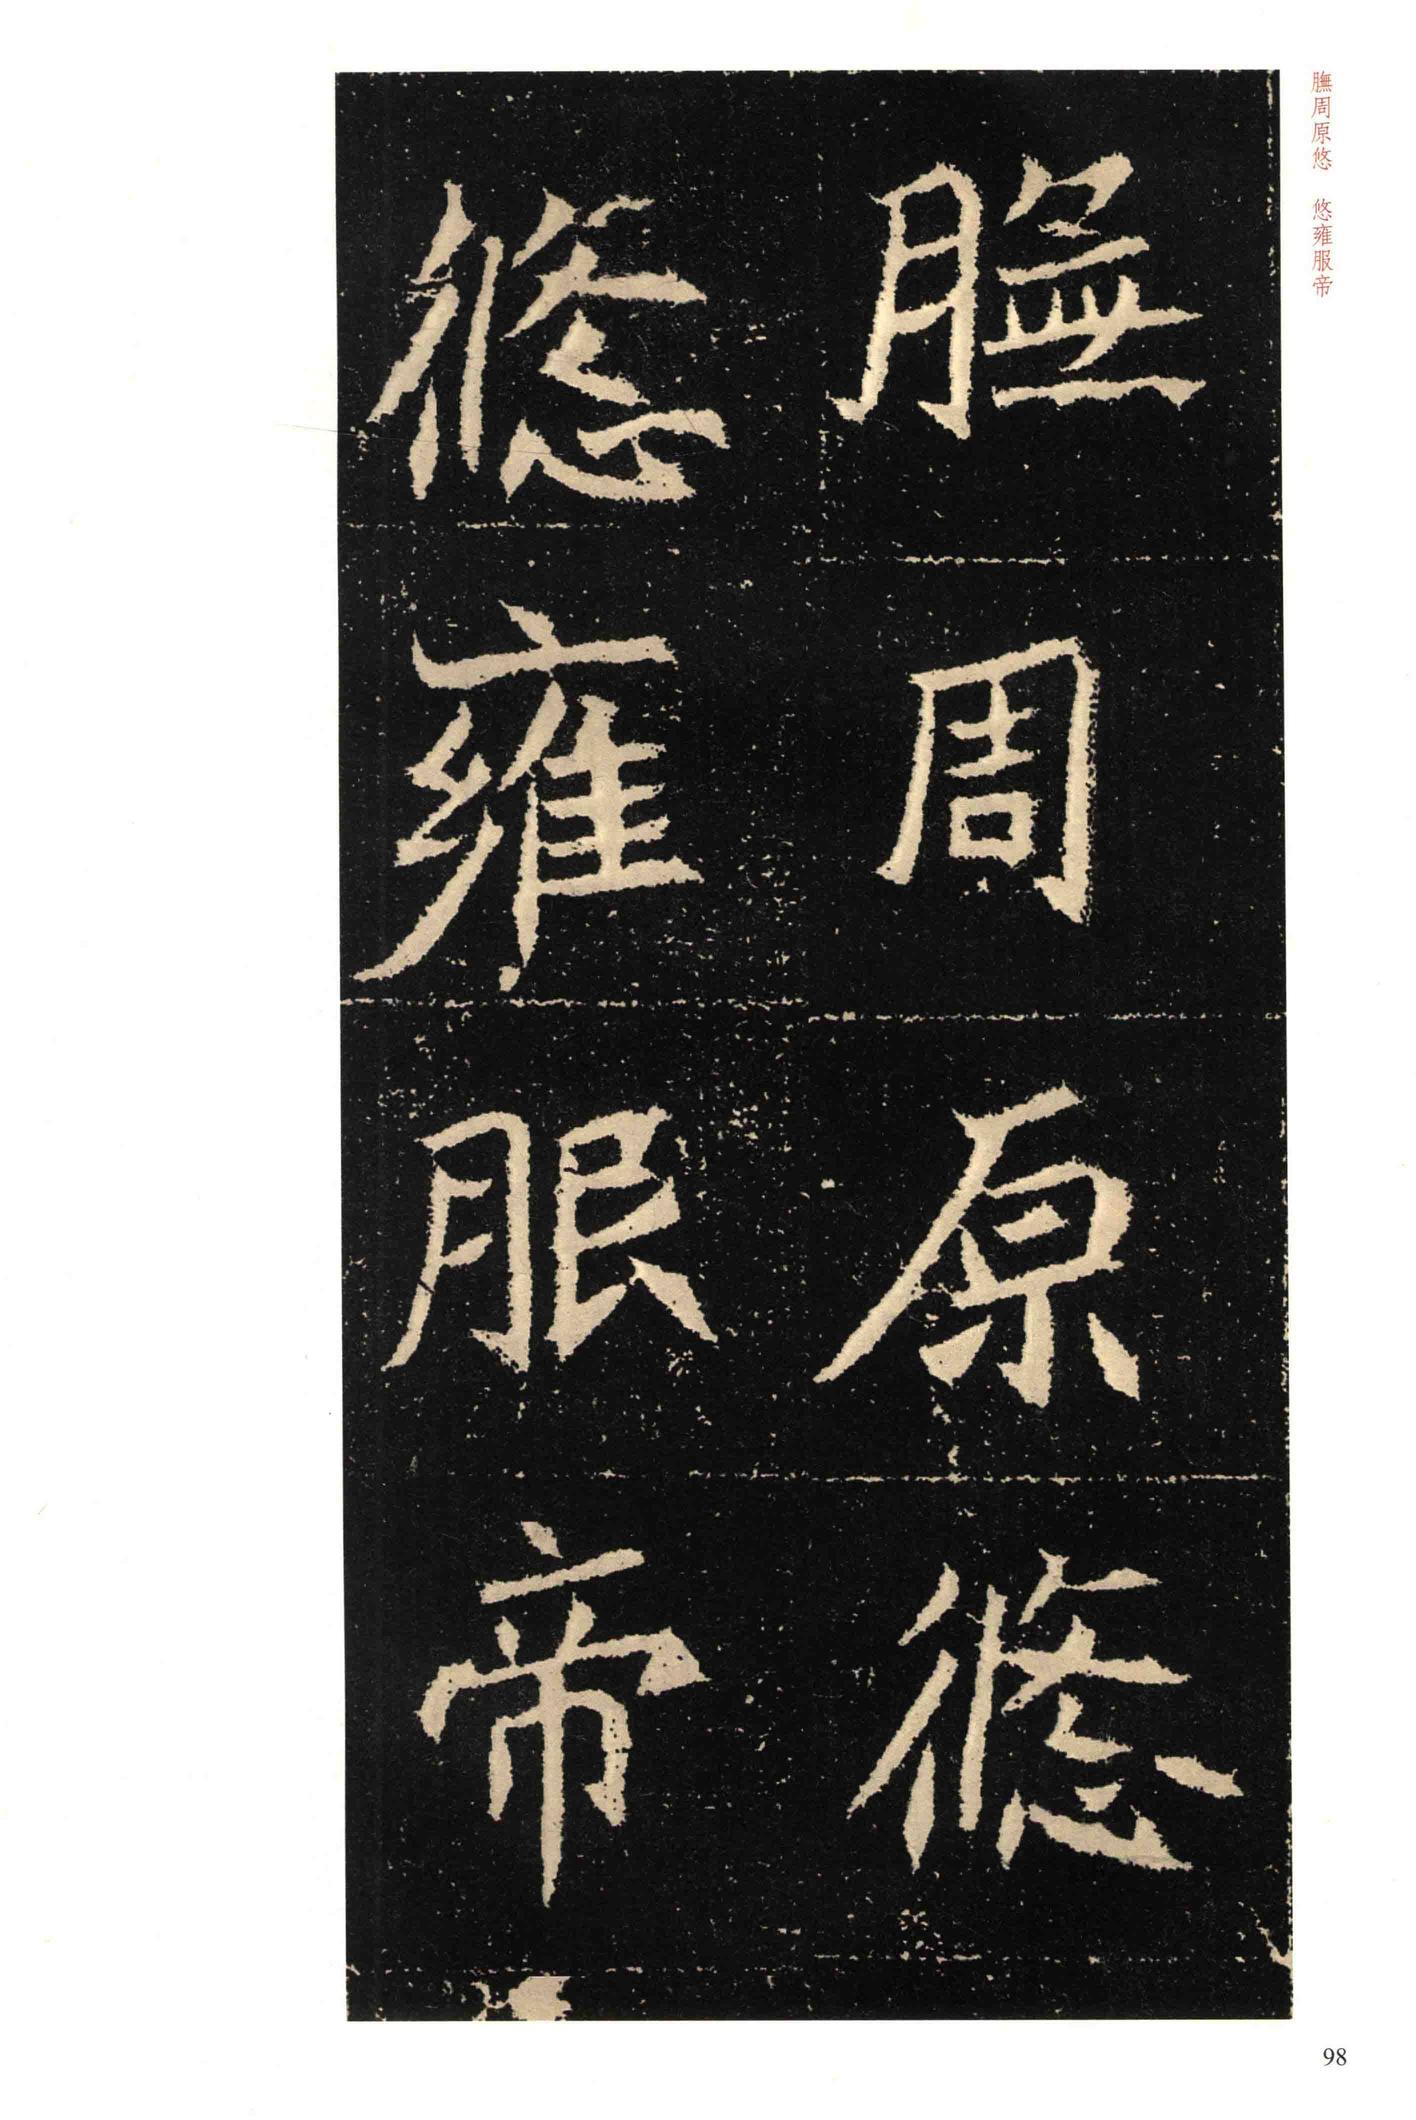 膴周原悠　悠雍服帝
膴周原悠
悠雍服帝
98